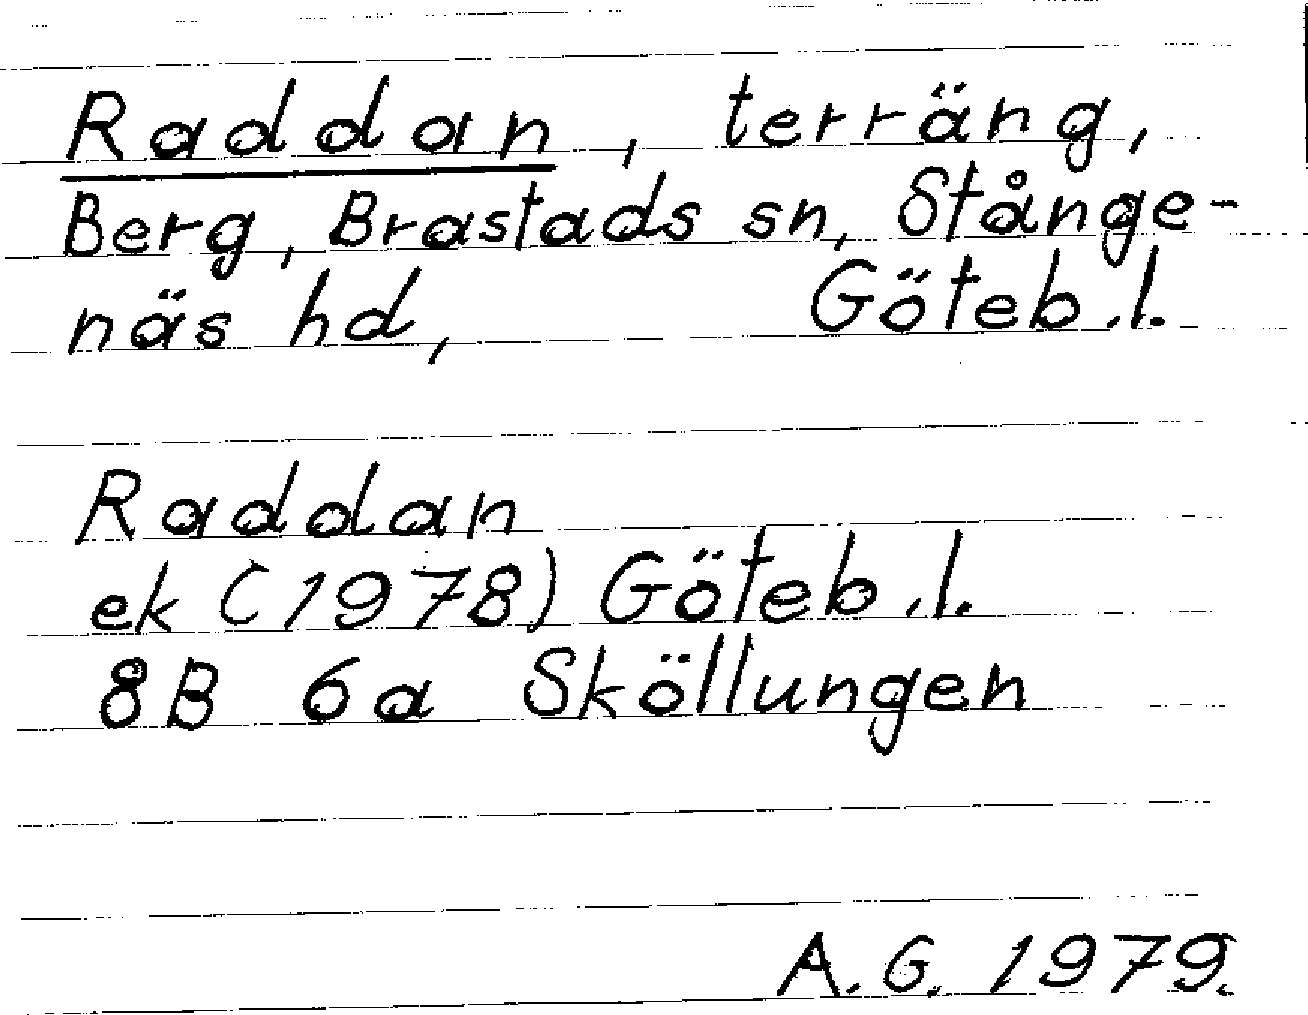 Raddan, terräng,
Berg, Brastads sn, Stånge-
näs hd, Göteb.l.
Raddan
ek (1978) Göteb.l.
8B 6a Sköllungen
A.G. 1979.